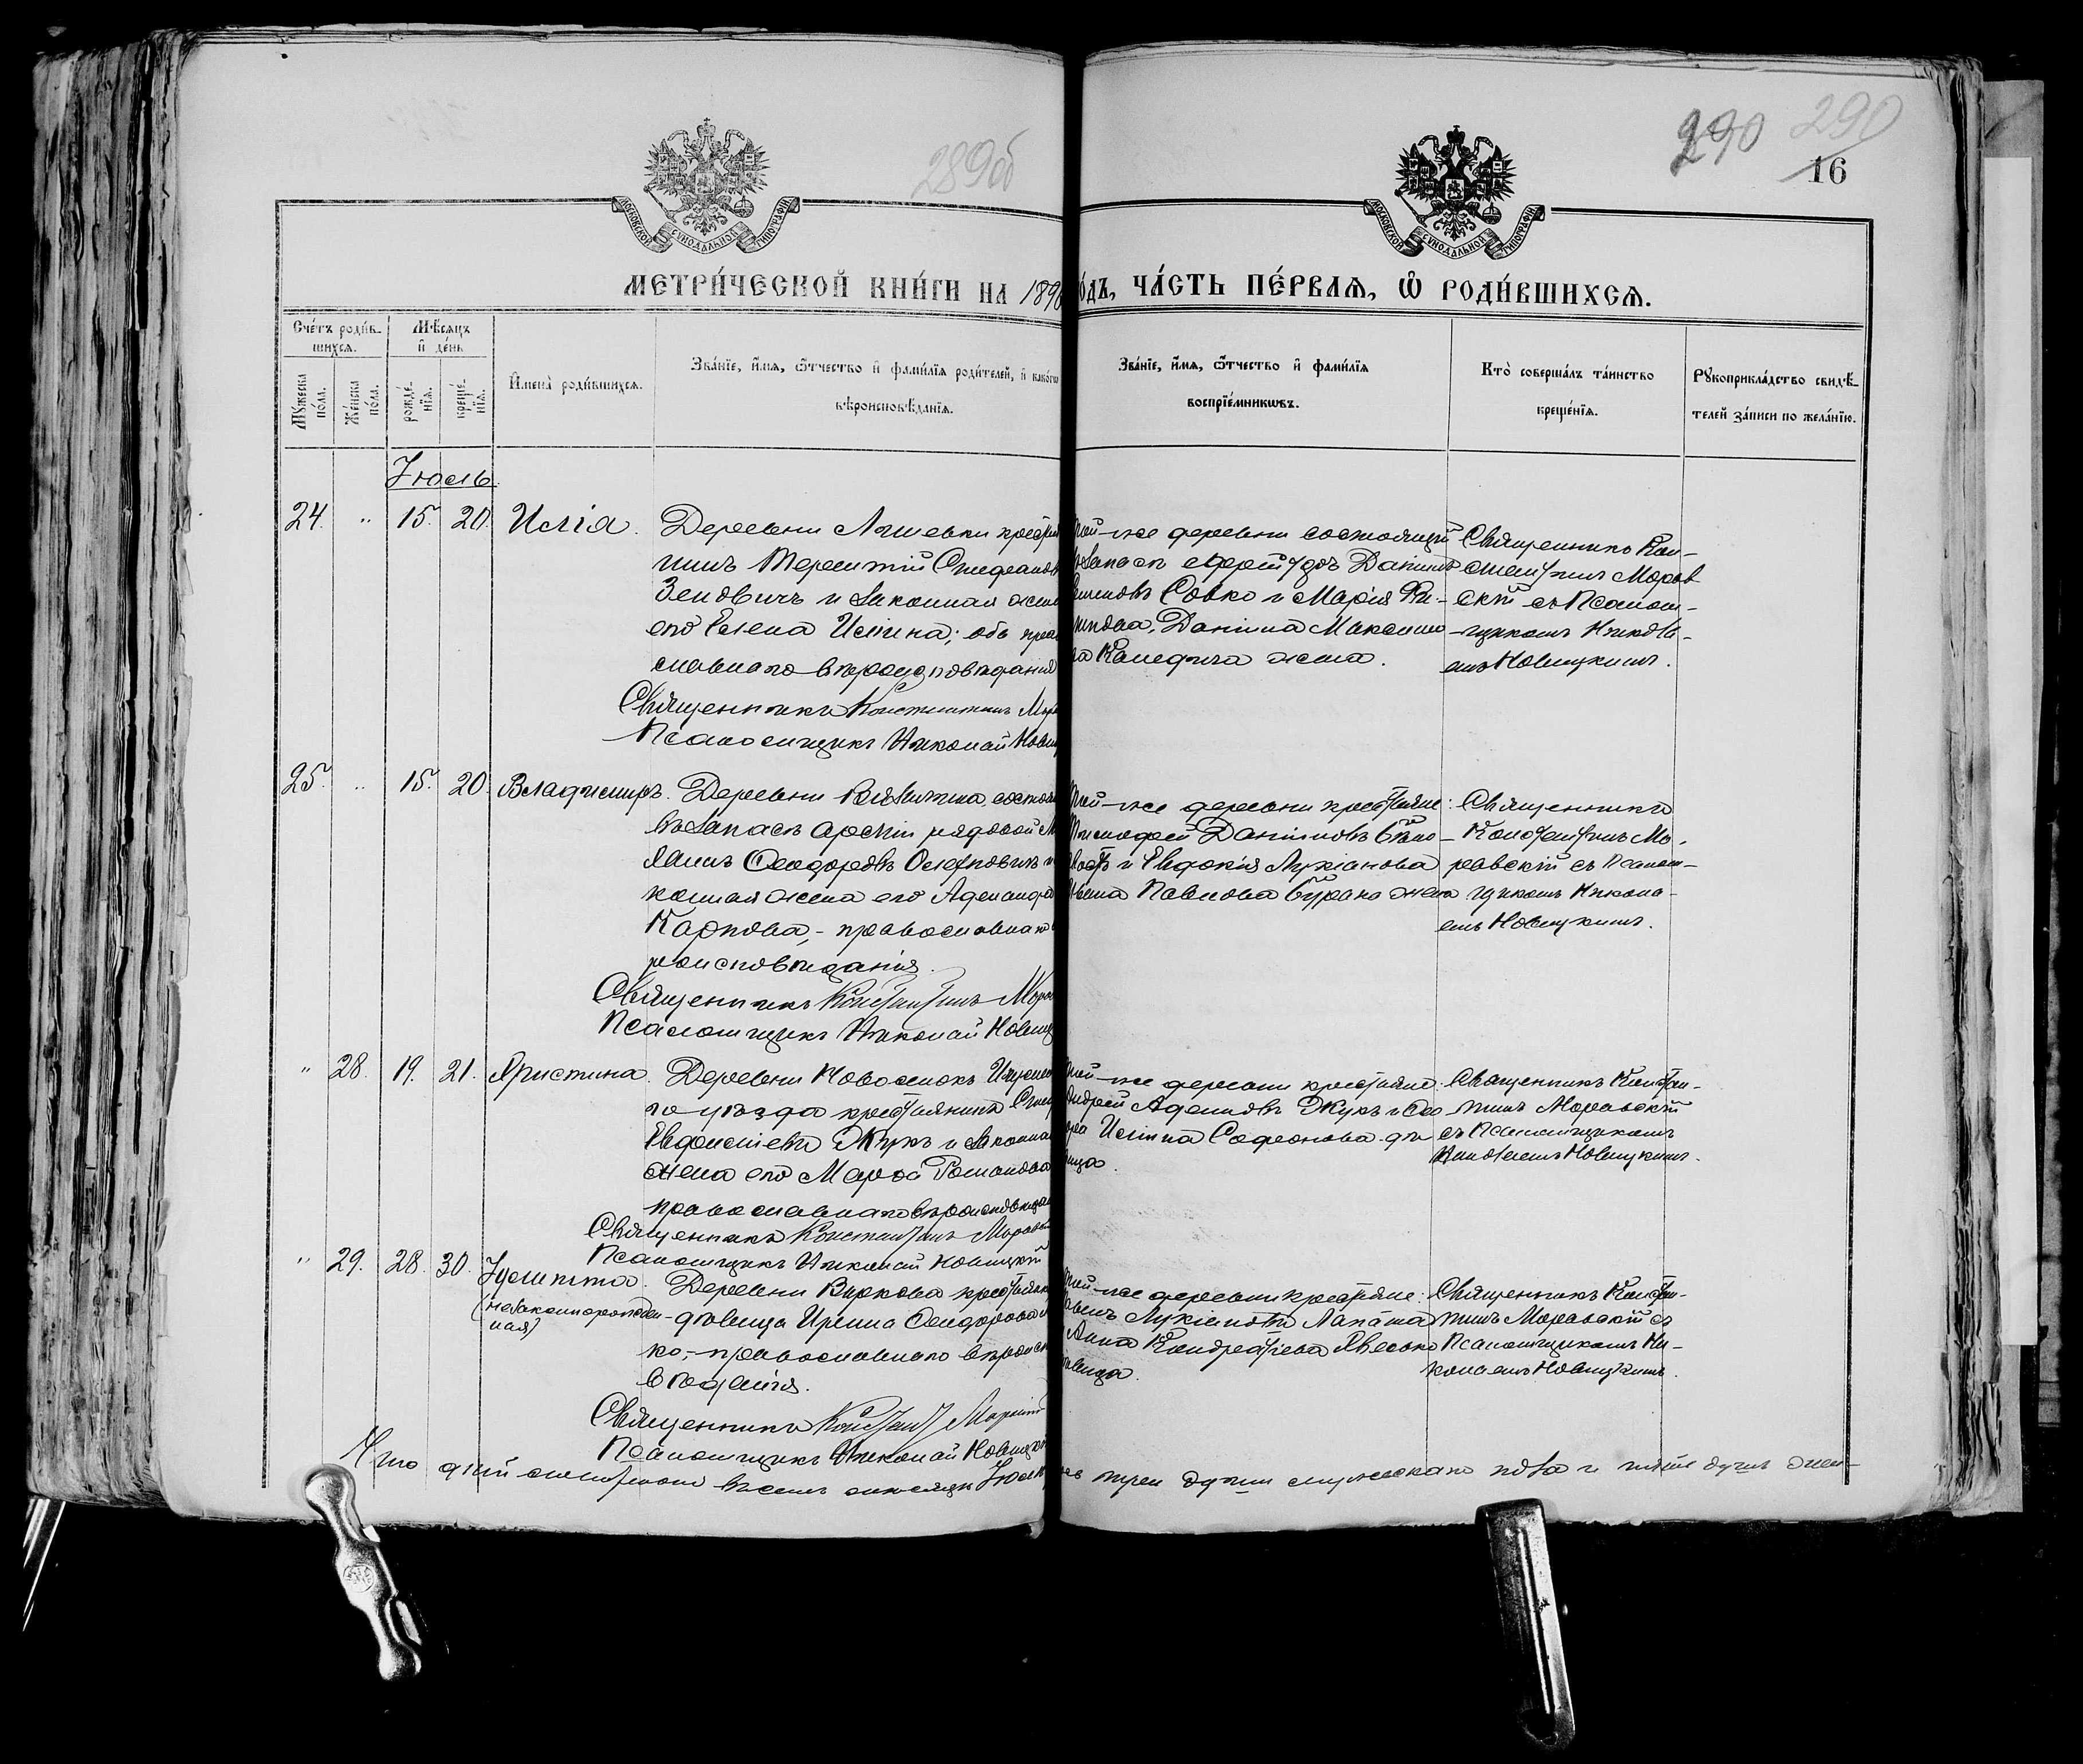 289об
290 290
16
МОСКОВСКОЙ СѴНОДАЛЬНОЙ ТИПОГРАФІИ
МОСКОВСКОЙ СѴНОДАЛЬНОЙ ТИПОГРАФІИ
МЕТРИ́ЧЕСКОЙ КНИ́ГИ НА 1890
О́ДЪ, ЧА́СТЬ ПЕ́РВАѦ, Ѽ РОДИ́ВШИХСѦ.
Сче́тъ роди́в-
шихсѧ.
Мѣ́сѧцъ
и҆ де́нь
Мꙋ́жеска
по́ла.
Же́нска
по́ла.
рожде́-
нїѧ.
креще́-
нїѧ.
И҆мена̀ роди́вшихсѧ.
Зва́нїе, и҆́мѧ, ѻ҆́тчество и҆ фами́лїѧ роди́телей, и҆ како́гѡ
вѣроисповѣ́данїѧ.
Зва́нїе, и҆́мѧ, ѻ҆́тчество и҆ фами́лїѧ
воспрїе́мникѡвъ.
Кто̀ соверша́лъ та́инство
креще́нїѧ.
Рꙋкоприкла́дство свидѣ́-
телей за́писи по жела́нїю.
Іюль
24. " 15. 20. Илія. Деревни крестья
нинъ Терентій Стефановъ
Зеновичъ и законная жена
его Елена Ильина; оба право
славнаго вѣроисповѣданія
Священникъ Константинъ Мора
Псаломщикъ Николай Новиц
той-же деревни состоящій
въ запасѣ Даніилъ
Совко и Марія Фи-
липова, Даніила Максимо
ва жена.
Священникъ Кон-
стантинъ Морав
скій съ Псалом-
щикомъ Никола-
емъ Новицкимъ.
25. " 15. 20. Владимиръ. Деревни состоя
въ запасѣ арміи рядовой
Ѳеодоровъ
конная жена его Александра
Карпова, - православнаго в
роисповѣданія.
Священникъ Константинъ Мора
Псаломщикъ Николай Новиц
той-же деревни крестьяне:
Тимофей Даніиловъ
и Евдокія Лукіанова
Павлова Бурако жена
Священникъ
Константинъ Мо-
равскій съ Псалом-
щикомъ Никола-
емъ Новицкимъ.
" 28. 19. 21. Христина. Деревни Новоселокъ Игумен
го уѣзда крестьянинъ
Жукъ и законная
жена его Марѳа Романова
православнаго вѣроисповѣда
Священникъ Константинъ Моравс
Псаломщикъ Николай Новицкій
той-же деревни крестьяне:
Андрей Адамовъ Жукъ и Ѳео
Ильина Софронова дѣ-
вица.
Священникъ Констан-
тинъ Моравскій
съ Псаломщикомъ
Николаемъ Новицкимъ.
" 29. 28. 30. Іулитта.
(незаконнорожден-
ная)
Деревни Виркова крестьянк
дѣвица Ирина Ѳеодорова
ко, - православнаго вѣроиспо
вѣданія.
Священникъ Констант Моравскій
Псаломщикъ Николай Новицкій
той-же деревни крестьяне:
Лукіановъ Лапата
Анна Кондратьева
дѣвица.
Священникъ Констан-
тинъ Моравскій съ
Псаломщикомъ Ни-
колаемъ Новицкимъ.
Что въ семъ мѣсяцѣ Іюлѣ
три души мужескаго пола и душъ жен-